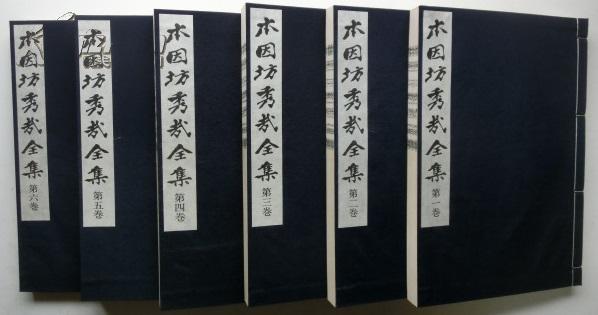 本因坊秀哉全集 第一巻
本因坊秀哉全集 第二巻
本因坊秀哉全集 第三巻
本因坊秀哉全集 第四巻
本因坊秀哉全集 第五巻
本因坊秀哉全集 第六巻